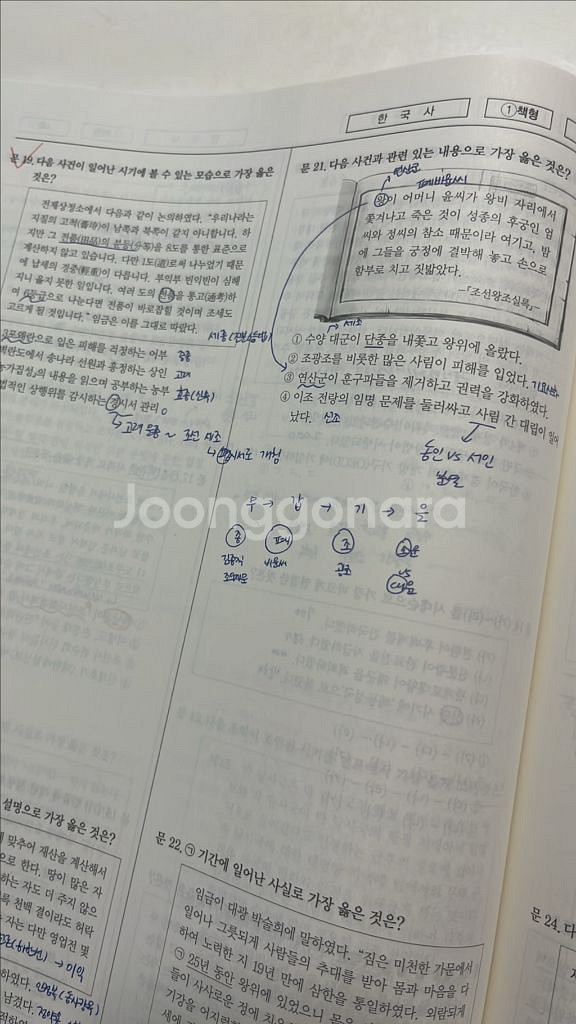 한 국 사
①책형
문 19. 다음 사건이 일어난 시기에 볼 수 있는 모습으로 가장 옳은
것은?
전제상정소에서 다음과 같이 논의하였다. “우리나라는
지질의 고척(膏瘠)이 남쪽과 북쪽이 같지 아니합니다. 하
지만 그 전품(田品)의 분등(分等)을 8도를 통한 표준으로
계산하지 않고 있습니다. 다만 1도(道)로써 나누었기 때문
에 납세의 경중(輕重)이 다릅니다. 부익부 빈익빈이 심해
지니 옳지 못한 일입니다. 여러 도의 전품을 통고(通考)하
여 6등급으로 나눈다면 전품이 바로잡힐 것이며 조세도
고르게 될 것입니다.” 임금은 이를 그대로 따랐다.
3포왜란으로 입은 피해를 걱정하는 어부 중종
벽란도에서 송나라 선원과 흥정하는 상인 고려
농가집성』의 내용을 읽으며 공부하는 농부 효종(신속)
법적인 상행위를 감시하는 경시서 관리
고려 문종 ~ 조선 세조
평시서로 개칭
문 21. 다음 사건과 관련 있는 내용으로 가장 옳은 것은?
연산군
폐비윤씨
왕이 어머니 윤씨가 왕비 자리에서
쫓겨나고 죽은 것이 성종의 후궁인 엄
씨와 정씨의 참소 때문이라 여기고, 밤
에 그들을 궁정에 결박해 놓고 손으로
함부로 치고 짓밟았다.
-『조선왕조실록』-
세조
① 수양 대군이 단종을 내쫓고 왕위에 올랐다.
② 조광조를 비롯한 많은 사림이 피해를 입었다. 기묘사화
③ 연산군이 훈구파들을 제거하고 권력을 강화하였다.
④ 이조 전랑의 임명 문제를 둘러싸고 사림 간 대립이 일어
났다. 선조
동인 vs 서인
무 → 갑 → 기 → 을
종 폐 조 소윤
김종직 비윤씨 광조 vs
조의제문 대윤
Joonggonara
설명으로 가장 옳은 것은?
맞추어 재산을 계산해서
으로 한다. 땅이 많은 자
하는 자도 더 주지 않으
록 천백 결이라도 허락
는 자는 다만 영업전 몇
→ 이익
하였다.
남겼다.
문 22. ㉠ 기간에 일어난 사실로 가장 옳은 것은?
임금이 대광 박술희에 말하였다. “짐은 미천한 가문에서
일어나 그릇되게 사람들의 추대를 받아 몸과 마음을 다
하여 노력한 지 19년 만에 삼한을 통일하였다. 외람되게
㉠ 25년 동안 왕위에 있었으니 몸은
들이 사사로운 정에
기강을 어지럽
문 24. 다